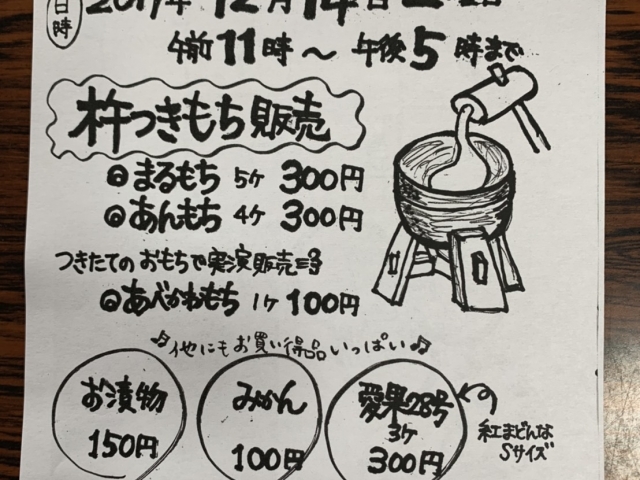 日時
2019年 12月 14日
午前11時～午後5時まで
杵つきもち販売
まるもち 5ケ 300円
あんもち 4ケ 300円
つきたてのおもちで実演販売
あべかわもち 1ケ 100円
♪他にもお買い得品いっぱい♪
お漬物
150円
みかん
100円
愛果28号
3ケ
300円
紅まどんな
Sサイズ